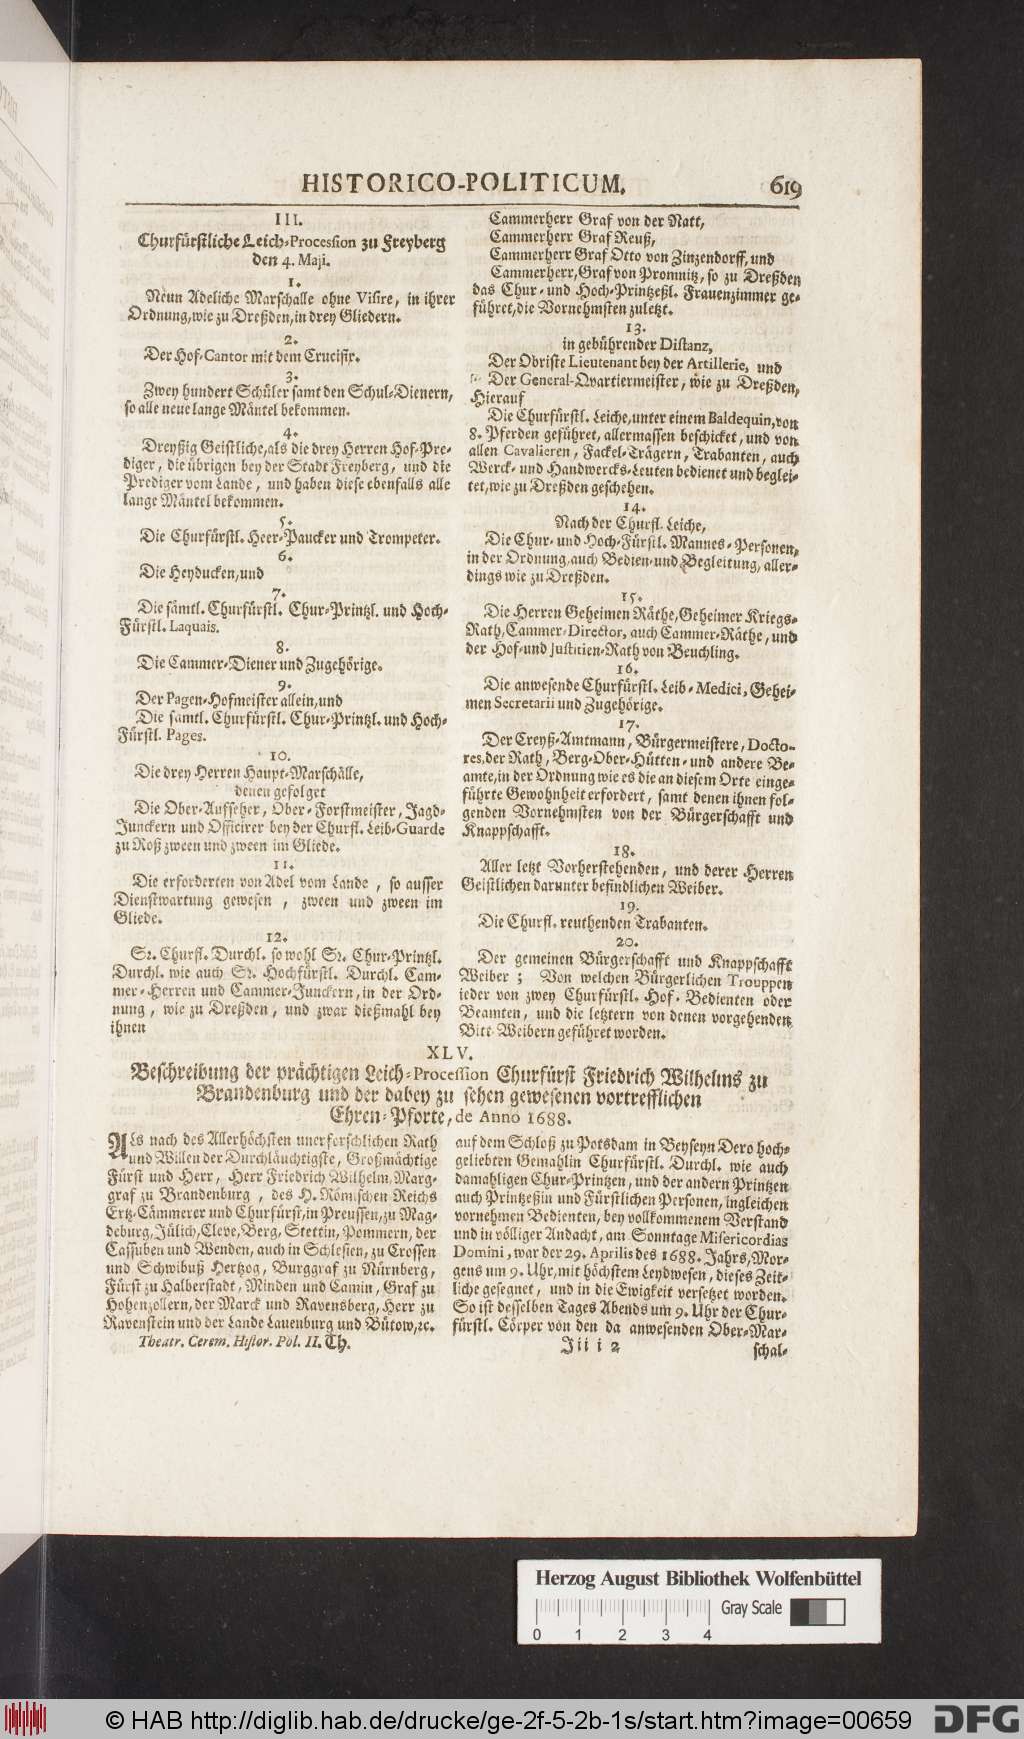 HISTORICO-POLITICUM. 619
III.
Churfürstliche Leich-Procession zu Freyberg
den 4. Maji.
1.
Neun Adeliche Marschalle ohne Visire, in ihrer
Ordnung, wie zu Dreßden, in drey Gliedern.
2.
Der Hof-Cantor mit dem Crucifix.
3.
Zwey hundert Schüler samt den Schul-Dienern,
so alle neue lange Mäntel bekommen.
4.
Dreyßig Geistliche, als die drey Herren Hof-Pre-
diger, die übrigen bey der Stadt Freyberg, und die
Prediger vom Lande, und haben diese ebenfalls alle
lange Mäntel bekommen.
5.
Die Churfürstl. Heer-Paucker und Trompeter.
6.
Die Heyducken, und
7.
Die sämtl. Churfürstl. Chur-Printzl. und Hoch-
Fürstl. Laquais.
8.
Die Cammer-Diener und Zugehörige.
9.
Der Pagen-Hofmeister allein, und
Die sämtl. Churfürstl. Chur-Printzl. und Hoch-
Fürstl. Pages.
10.
Die drey Herren Haupt-Marschälle,
denen gefolget
Die Ober-Aufseher, Ober-Forstmeister, Jagd-
Junckern und Officirer bey der Churfl. Leib-Guarde
zu Roß zween und zween im Gliede.
11.
Die erforderten von Adel vom Lande, so ausser
Dienstwartung gewesen, zween und zween im
Gliede.
12.
Sr. Churfl. Durchl. so wohl Sr. Chur-Printzl.
Durchl. wie auch Sr. Hochfürstl. Durchl. Cam-
mer-Herren und Cammer-Junckern, in der Ord-
nung, wie zu Dreßden, und zwar dießmahl bey
ihnen
Cammerherr Graf von der Natt,
Cammerherr Graf Reuß,
Cammerherr Graf Otto von Zinzendorff, und
Cammerherr, Graf von Promnitz, so zu Dreßden
das Chur- und Hoch-Printzeßl. Frauenzimmer ge-
führet, die Vornehmsten zuletzt.
13.
in gebührender Distanz,
Der Obriste Lieutenant bey der Artillerie, und
Der General-Qvartiermeister, wie zu Dreßden,
Hierauf
Die Churfürstl. Leiche, unter einem Baldequin, von
8. Pferden geführet, allermassen beschicket, und von
allen Cavalieren, Fackel-Trägern, Trabanten, auch
Werck- und Handwercks-Leuten bedienet und beglei-
tet, wie zu Dreßden geschehen.
14.
Nach der Churfl. Leiche,
Die Chur- und Hoch-Fürstl. Mannes-Personen,
in der Ordnung, auch Bedien- und Begleitung, aller-
dings wie zu Dreßden.
15.
Die Herren Geheimen Räthe, Geheimer Kriegs-
Rath, Cammer-Director, auch Cammer-Räthe, und
der Hof- und Justitien-Rath von Beuchling.
16.
Die anwesende Churfürstl. Leib-Medici, Gehei-
men Secretarii und Zugehörige.
17.
Der Creyß-Amtmann, Bürgermeistere, Docto-
res, der Rath, Berg-Ober-Hütten- und andere Be-
amte, in der Ordnung wie es die an diesem Orte einge-
führte Gewohnheit erfordert, samt denen ihnen fol-
genden Vornehmsten von der Bürgerschafft und
Knappschafft.
18.
Aller letzt Vorherstehenden, und derer Herren
Geistlichen darunter befindlichen Weiber.
19.
Die Churfl. reuthenden Trabanten.
20.
Der gemeinen Bürgerschafft und Knappschafft
Weiber; Von welchen Bürgerlichen Trouppen
ieder von zwey Churfürstl. Hof-Bedienten oder
Beamten, und die letztern von denen vorgehenden
Bitt-Weibern geführet worden.
XLV.
Beschreibung der prächtigen Leich-Procession Churfürst Friedrich Wilhelms zu
Brandenburg und der dabey zu sehen gewesenen vortrefflichen
Ehren-Pforte, de Anno 1688.
Als nach des Allerhöchsten unerforschlichen Rath
und Willen der Durchläuchtigste, Großmächtige
Fürst und Herr, Herr Friedrich Wilhelm, Marg-
graf zu Brandenburg, des H. Römischen Reichs
Ertz-Cämmerer und Churfürst, in Preussen, zu Mag-
deburg, Jülich, Cleve, Berg, Stettin, Pommern, der
Cassuben und Wenden, auch in Schlesien, zu Crossen
und Schwibuß Hertzog, Burggraf zu Nürnberg,
Fürst zu Halberstadt, Minden und Camin, Graf zu
Hohenzollern, der Marck und Ravensberg, Herr zu
Ravenstein und der Lande Lauenburg und Bütow, ec.
auf dem Schloß zu Potsdam in Beyseyn Dero hoch-
geliebten Gemahlin Churfürstl. Durchl. wie auch
damahligen Chur-Printzen, und der andern Printzen
auch Printzeßin und Fürstlichen Personen, ingleichen
vornehmen Bedienten, bey vollkommenem Verstand
und in völliger Andacht, am Sonntage Misericordias
Domini, war der 29. Aprilis des 1688. Jahrs, Mor-
gens um 9. Uhr, mit höchstem Leydwesen, dieses Zeit-
liche gesegnet, und in die Ewigkeit versetzet worden.
So ist desselben Tages Abends um 9. Uhr der Chur-
fürstl. Cörper von den da anwesenden Ober-Mar-
Theatr. Cerem. Histor. Pol. II. Th.
Jiii 2
schal-
Herzog August Bibliothek Wolfenbüttel
Gray Scale
0 1 2 3 4
© HAB http://diglib.hab.de/drucke/ge-2f-5-2b-1s/start.htm?image=00659
DFG